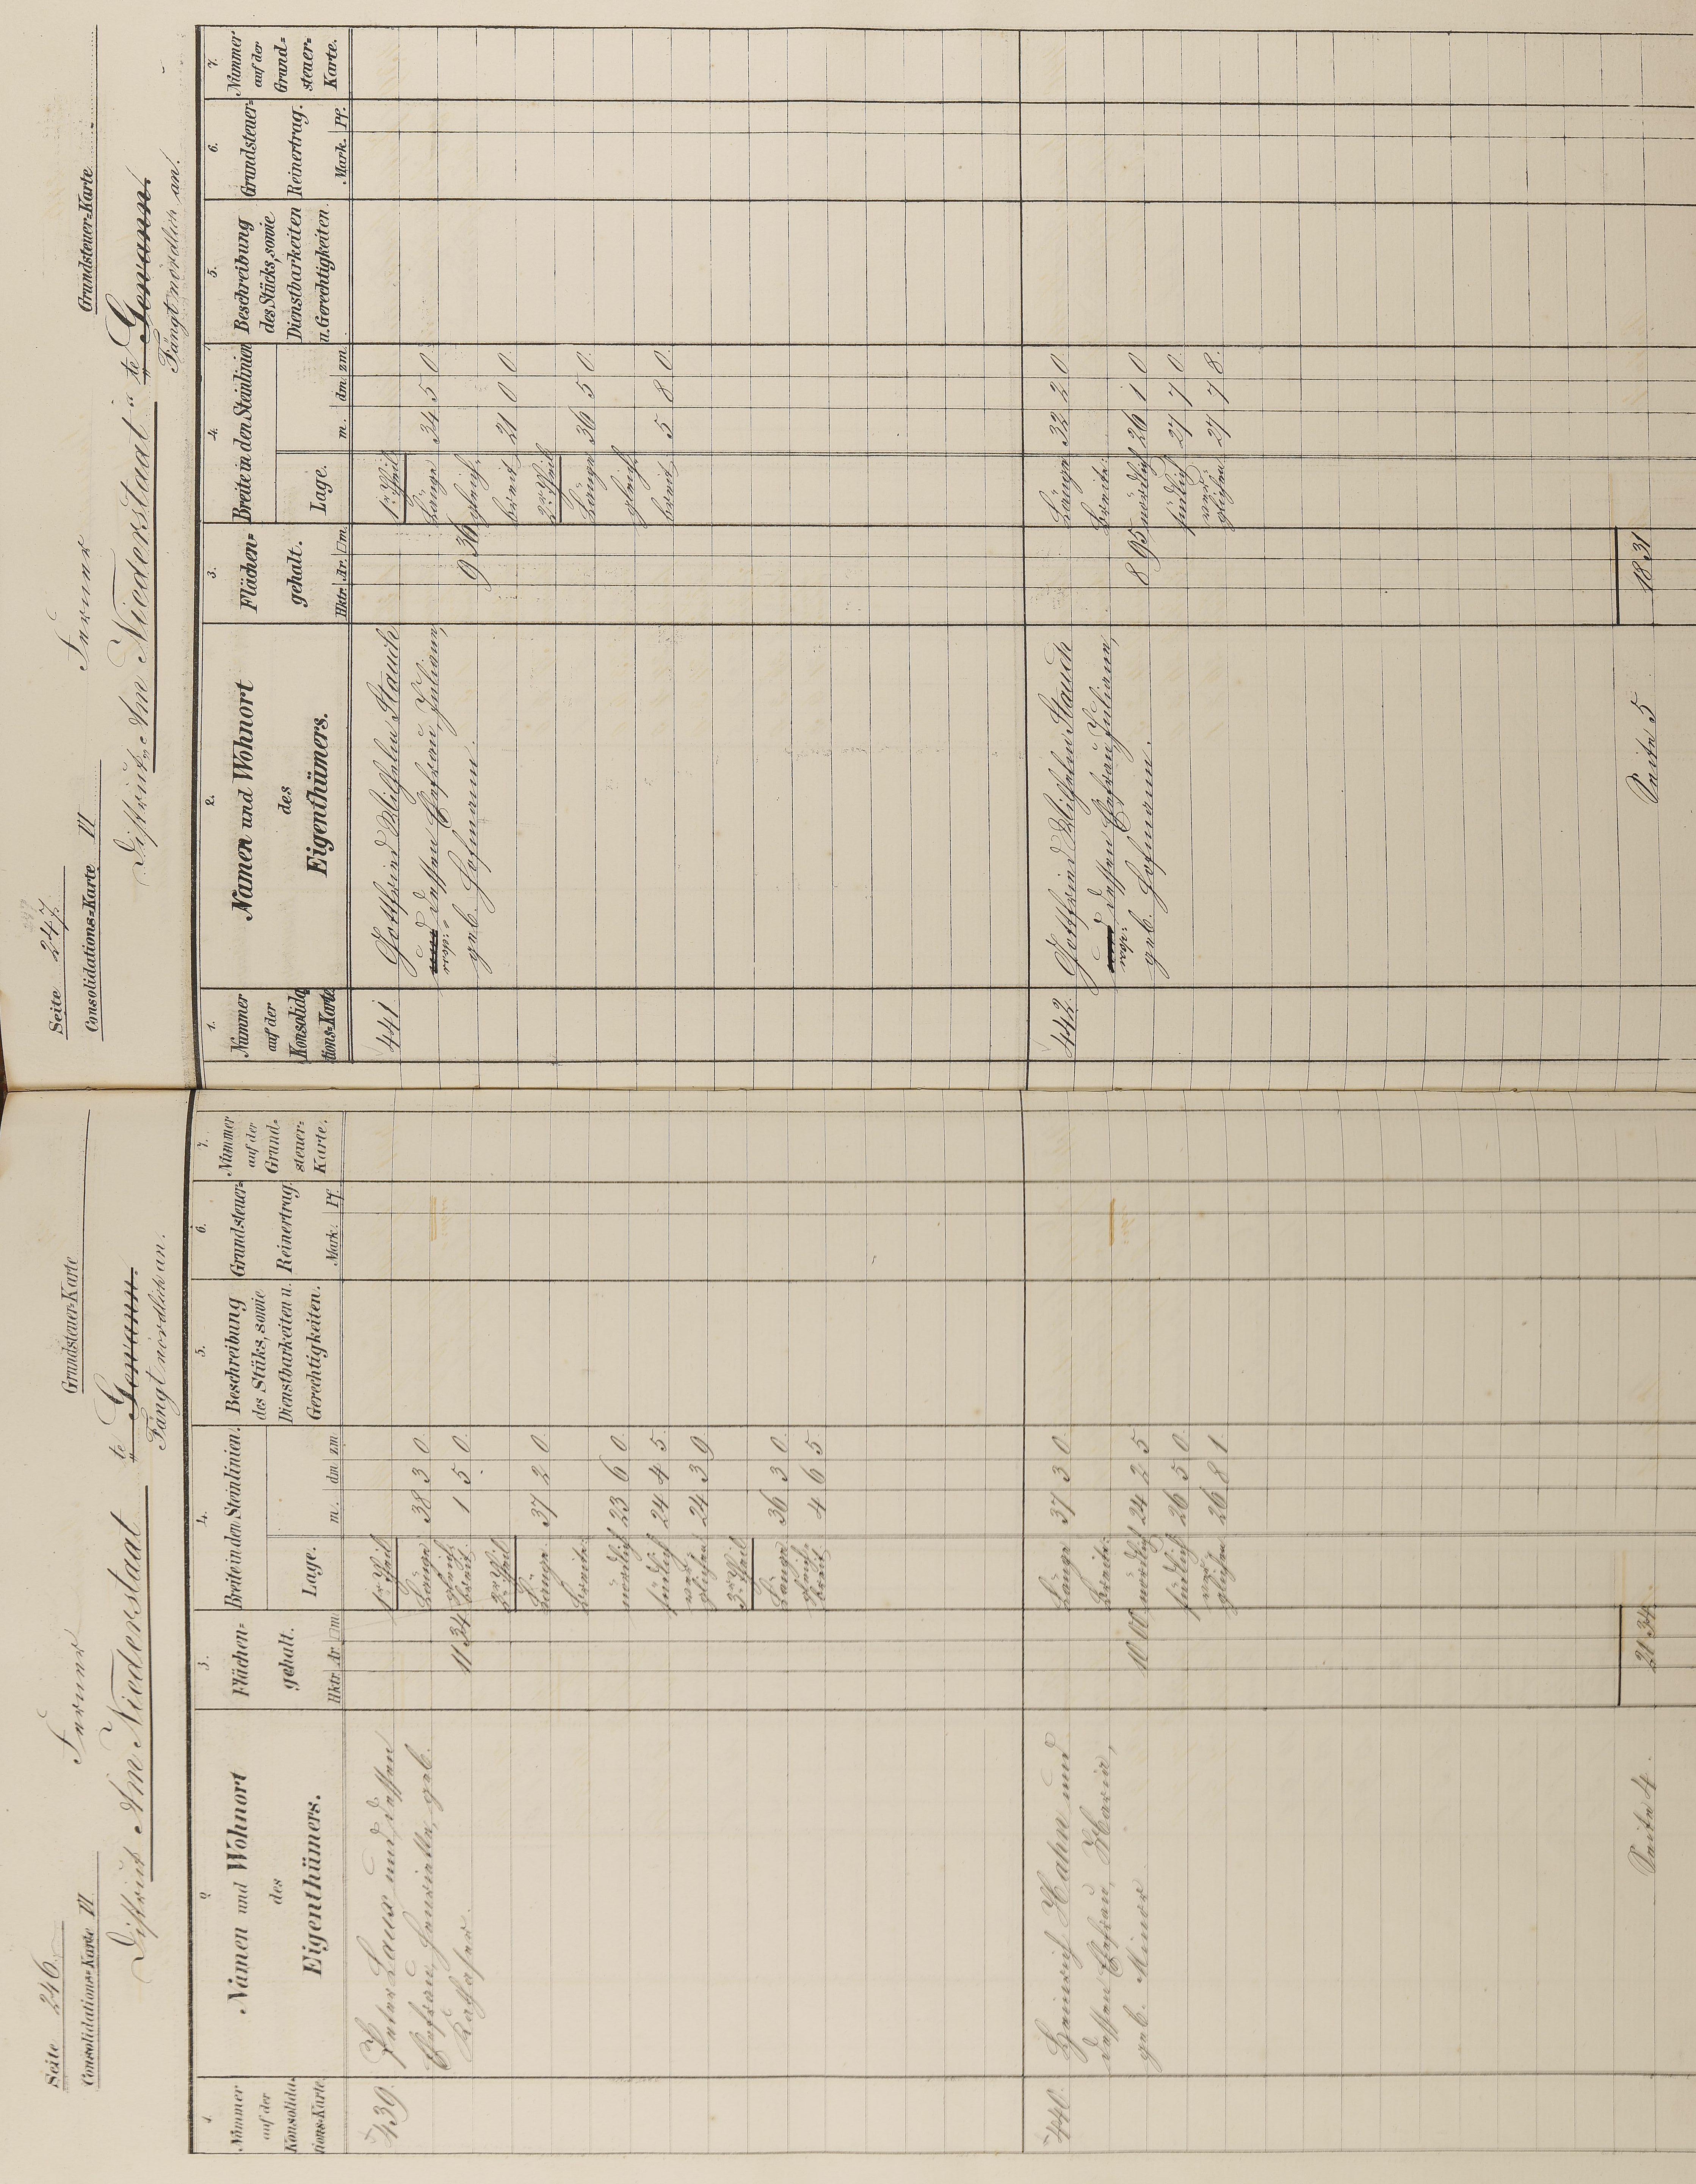 Seite 246.
Consolidations=Karte VI
Ferner
Grundsteuer-Karte
Distrikt Am Niederstaat "te Gewann.
Fängt nördlich an.
1.
Nummer
auf der
Konsolida-
tions-Karte.
2.
Namen und Wohnort
des
Eigenthümers.
3.
Flächen-
gehalt.
Hktr. Ar. □m.
4.
Breite in den Steinlinien.
Lage.
m. dm. zm.
5.
Beschreibung
des Stüks, sowie
Dienstbarkeiten u.
Gerechtigkeiten.
6.
Grundsteuer-
Reinertrag.
Mark. Pf.
7.
Nummer
auf der
Grund-
steuer-
Karte.
439. Peter Laux und dessen
Ehefrau, Henriette, geb.
11 34
1r Theil
Länge 38 3 0
gleich
breit 1 5 0
2r Theil
Länge 37 2 0
Breite:
nördlich 23 6 0
südlich 24 4 5
ver
glichen 24 3 9
3r Theil
Länge 36 3 0
gleich
breit 4 6 5
440. Heinrich Hahn und
dessen Ehefrau, Maria,
geb. Minor
10 00
Länge 37 3 0
Breite:
nördlich 24 2 5
südlich 26 5 0
ver
glichen 26 8 1
Seite 4. 21 34
Seite 247.
Consolidations=Karte VI
Ferner
Grundsteuer=Karte
Distrikt Am Niederstaat "te Gewann.
Fängt nördlich an.
1.
Nummer
auf der
Konsolida
tions=Karte
2.
Namen und Wohnort
des
Eigenthümers.
3.
Flächen=
gehalt.
Hktr. Ar. □m.
4.
Breite in den Steinlinien
Lage.
m. dm. zm.
5.
Beschreibung
des Stücks, sowie
Dienstbarkeiten
u. Gerechtigkeiten.
6.
Grundsteuer=
Reinertrag.
Mark. Pf.
7.
Nummer
auf der
Grund=
steuer=
Karte.
441 Gottfried Wilhelm Stauch
und dessen Ehefrau, Juliane,
resp:
geb. Hofmann.
9 36
1r Theil
Länge 34 5 0
gleich
breit 21 0 0
2r Theil
Länge 36 5 0
gleich
breit 5 8 0
442. Gottfried Wilhelm Stauch
und dessen Ehefrau, Juliane,
resp:
geb. Hofmann.
8 95
Länge 32 2 0
Breite:
nördlich 26 1 0
südlich 27 7 0
ver
glichen 27 7 8
Seite 5 18 31